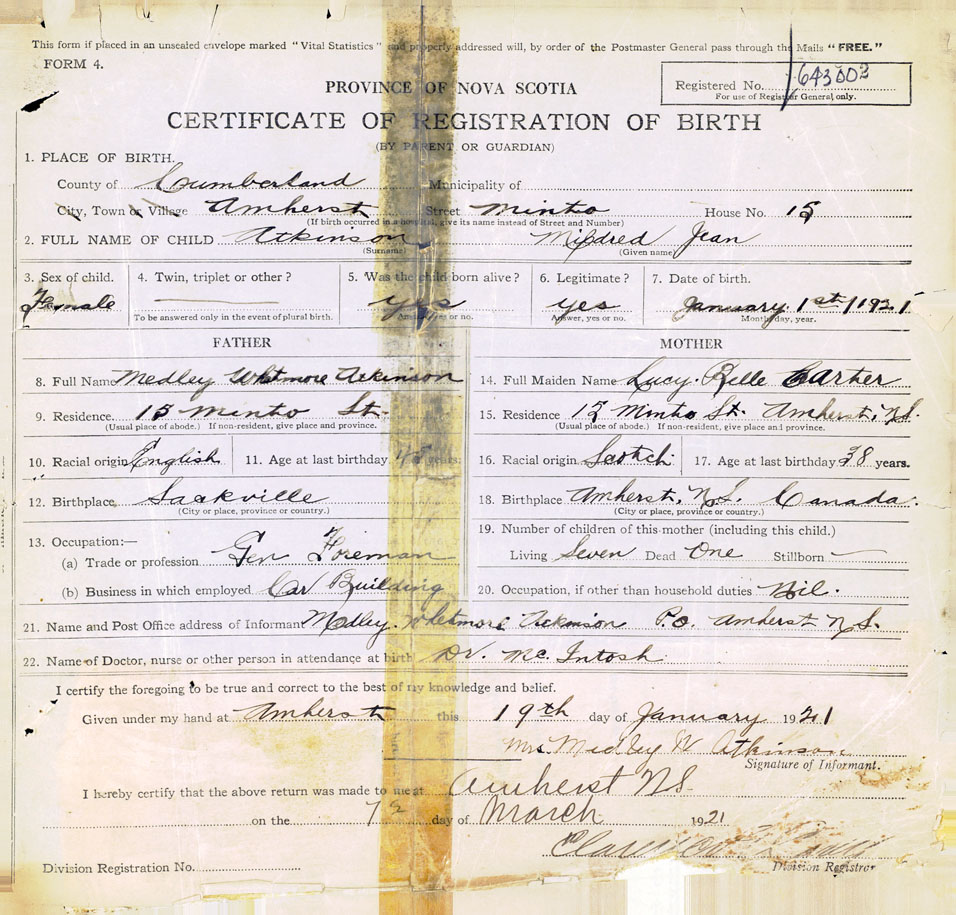 This form if placed in an unsealed envelope marked "Vital Statistics" and properly addressed will, by order of the Postmaster General pass through the Mails "FREE."
FORM 4.
Registered No. 643002
For use of Registrar General only.
PROVINCE OF NOVA SCOTIA
CERTIFICATE OF REGISTRATION OF BIRTH
(BY PARENT OR GUARDIAN)
1. PLACE OF BIRTH.
County of Cumberland Municipality of
City, Town or Village Amherst Street Minto House No. 15
(If birth occurred in a hospital, give its name instead of Street and Number)
2. FULL NAME OF CHILD Atkinson Mildred Jean
(Surname) (Given name)
3. Sex of child. 4. Twin, triplet or other? 5. Was the child born alive? 6. Legitimate? 7. Date of birth.
Female yes yes January 1st/1921
To be answered only in the event of plural birth. Answer, yes or no. Answer, yes or no. Month, day, year.
FATHER MOTHER
8. Full Name Medley Whitmore Atkinson 14. Full Maiden Name Lucy Belle Carter
9. Residence. 15 Minto St. 15. Residence 15 Minto St. Amherst, N.S.
(Usual place of abode.) If non-resident, give place and province. (Usual place of abode.) If non-resident, give place and province.
10. Racial origin English 11. Age at last birthday years. 16. Racial origin Scotch 17. Age at last birthday 38 years.
12. Birthplace Sackville 18. Birthplace Amherst, N.S. Canada.
(City or place, province or country.) (City or place, province or country.)
13. Occupation:— 19. Number of children of this mother (including this child.)
(a) Trade or profession Gen Foreman Living Seven Dead One Stillborn —
(b) Business in which employed Car Building 20. Occupation, if other than household duties Nil.
21. Name and Post Office address of Informant Medley Whitmore Atkinson P.O. Amherst N.S.
22. Name of Doctor, nurse or other person in attendance at birth Dr. McIntosh
I certify the foregoing to be true and correct to the best of my knowledge and belief.
Given under my hand at Amherst this 19th day of January 1921
Mrs. Medley W Atkinson
Signature of Informant.
I hereby certify that the above return was made to me at Amherst N.S.
on the day of March 1921
Division Registration No. Division Registrar